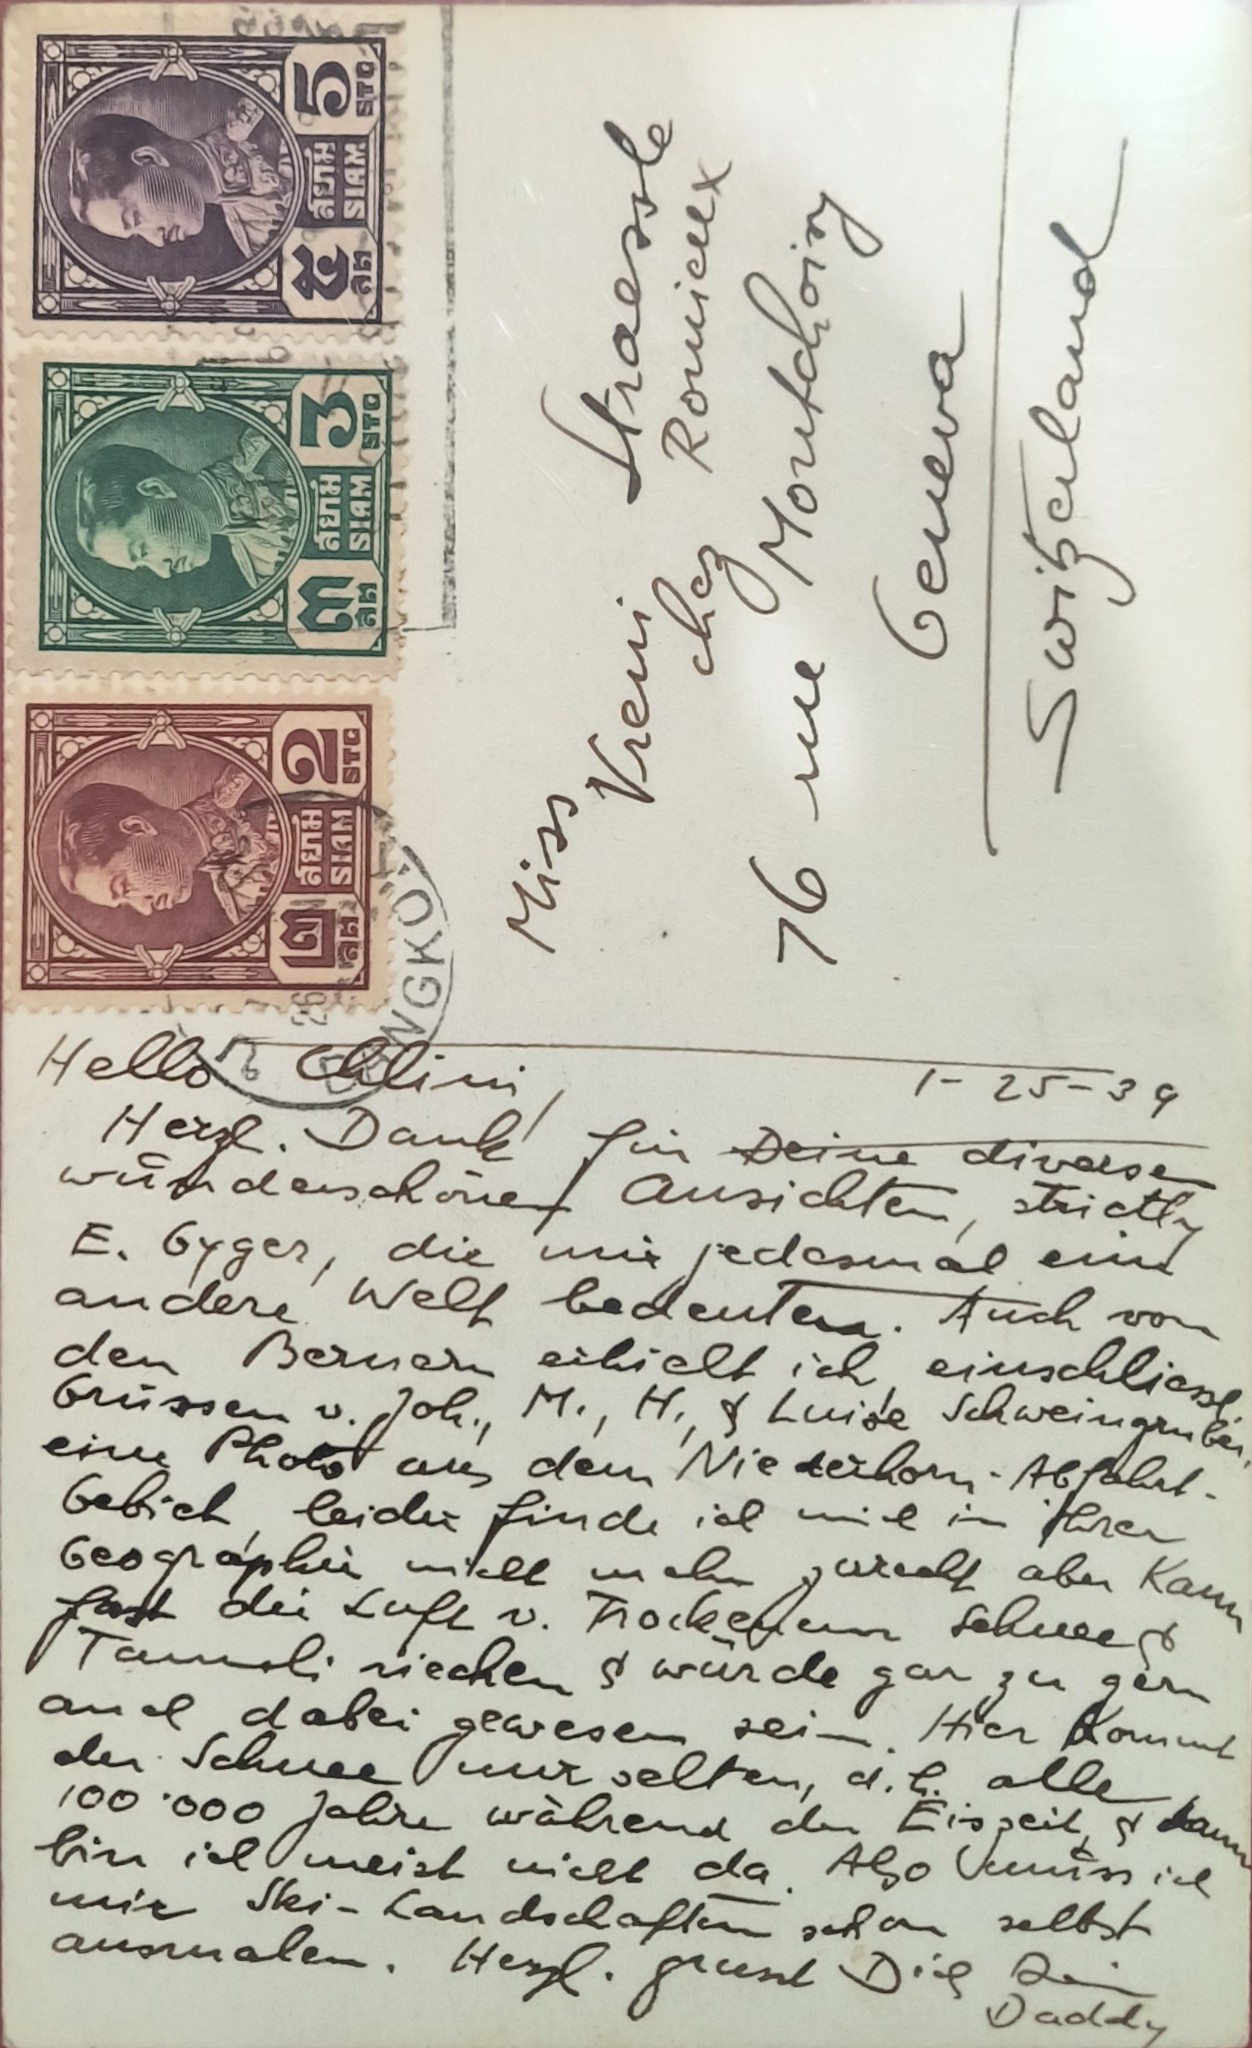 5
STG
สยาม
SIAM
๕
สต
3
STG
สยาม
SIAM
๓
สต
2
STG
สยาม
SIAM
๒
สต
BANGKOK
Miss
Vreni Straessle
chez Romieux
76 rue Montchoisy
Geneva
Switzerland
Hello Chlini, 1-25-39
Herzl. Dank für Deine diversen
wunderschönen Ansichten, strictly
E. Gyger, die mir jedesmal eine
andere Welt bedeuten. Auch von
den Bernern erhielt ich, einschliessl.
Grüssen v. Joh., M., H., & Luise Schweingruber,
eine Photo aus dem Niederhorn-Abfahrt-
Gebiet, leider finde ich mich in ihrer
Geographie nicht mehr zurecht aber kann
fast die Luft v. Trockenem Schnee &
Tannli riechen & würde gar zu gern
auch dabei gewesen sein. Hier kommt
der Schnee nur selten, d.h. alle
100'000 Jahre während der Eiszeit, & dann
bin ich meist nicht da. Also muss ich
mir Ski-Landschaften schon selbst
ausmalen. Herzl. grüsst Dich Dein
Daddy